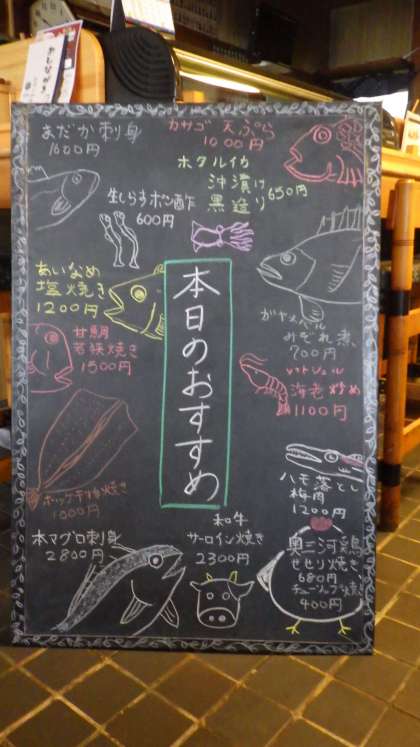 おしながき
まだか刺身
1600円
カサゴ天ぷら
1000円
ホタルイカ
沖漬け
黒造り
650円
生しらすポン酢
600円
あいなめ
塩焼き
1200円
本日のおすすめ
みぞれ煮
700円
甘鯛
若狭焼き
1500円
海老炒め
1100円
ホッケ干物焼き
1000円
ハモ落とし
梅肉
1200円
本マグロ刺身
2800円
和牛
サーロイン焼き
2300円
奥三河鶏
せせり焼き
680円
チューリップ焼
400円